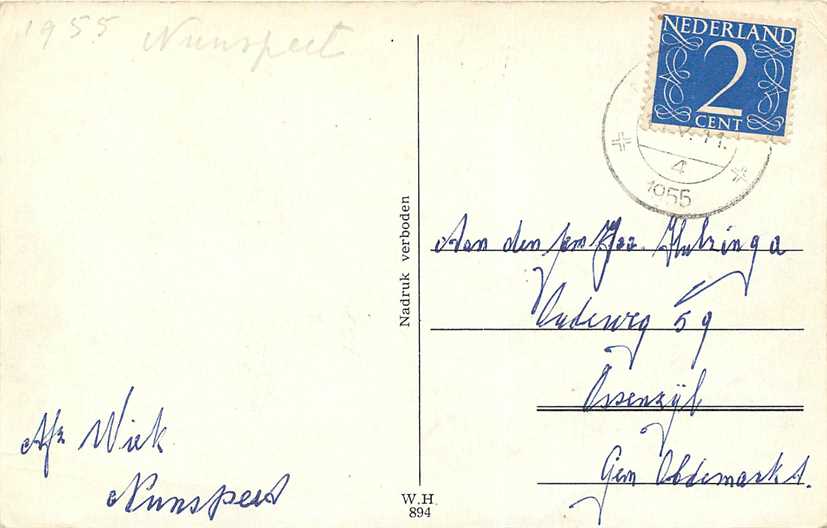 1955 Nunspeet
NEDERLAND
2
CENT
4
1955
Nadruk verboden
Aan den
Oudeweg 59
Ossenzijl
Gem Oldemarkt.
Afz Wiek
Nunspeet
W.H.
894